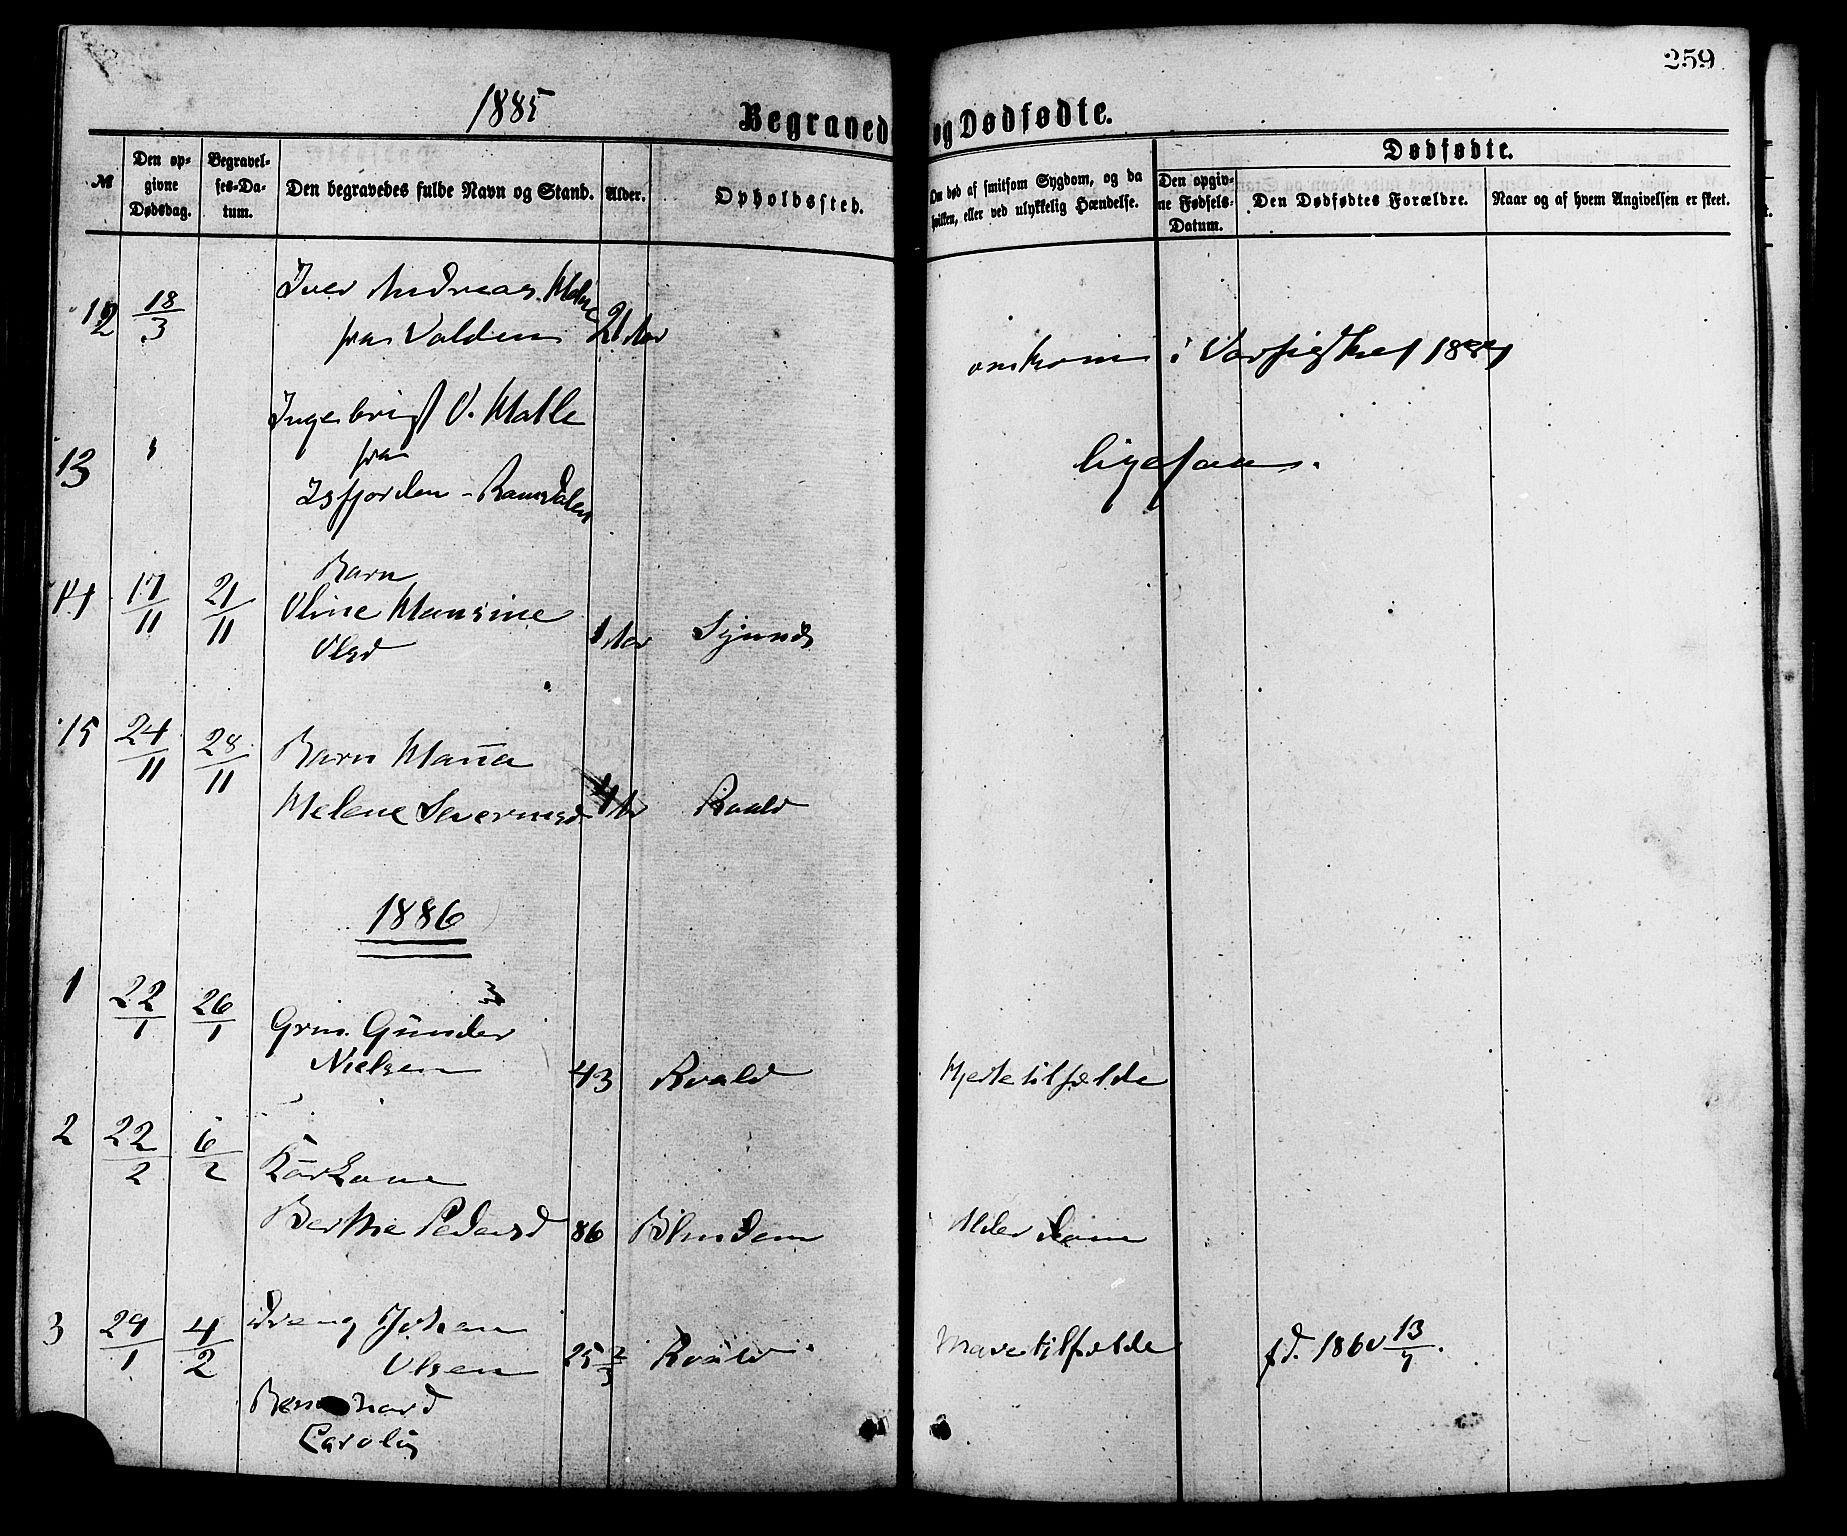 259
1885
Begravede og Dødfødte.
№
Den opgivne Dødsdag.
Begravelses-Datum.
Den begravedes fulde Navn og Stand.
Alder.
Opholdssted.
Om død af smitsom Sygdom, og da hvilken, eller ved ulykkelig Hændelse.
Dødfødte.
Den opgivne Fødsels-Datum.
Den Dødfødtes Forældre.
Naar og af hvem Angivelsen er skeet.
12 18/3 Iver Andreas
fra Volden 21 Aar omkom i Vorfisket
13 " Ingebrigt O. Malle ligesaa.
fra
Isfjorden - Romsdalen
14 17/11 21/11 Barn
Oline Hansine
Olsd 1 Aar
15 24/11 28/11 Barn Hanna
Helene Severinsd Roald
1886
1 22/1 26/1 Grm. Gunder
Nielsen 43 Roald Hjertetilfælde
2 22/2 6/2 Kårkone
Berthe Pedersd 86 Blindem Alderdom
3 29/1 4/2 Dreng Johan
Olsen 25 2/3 Roald Mavetilfælde fd. 1860 13/7.